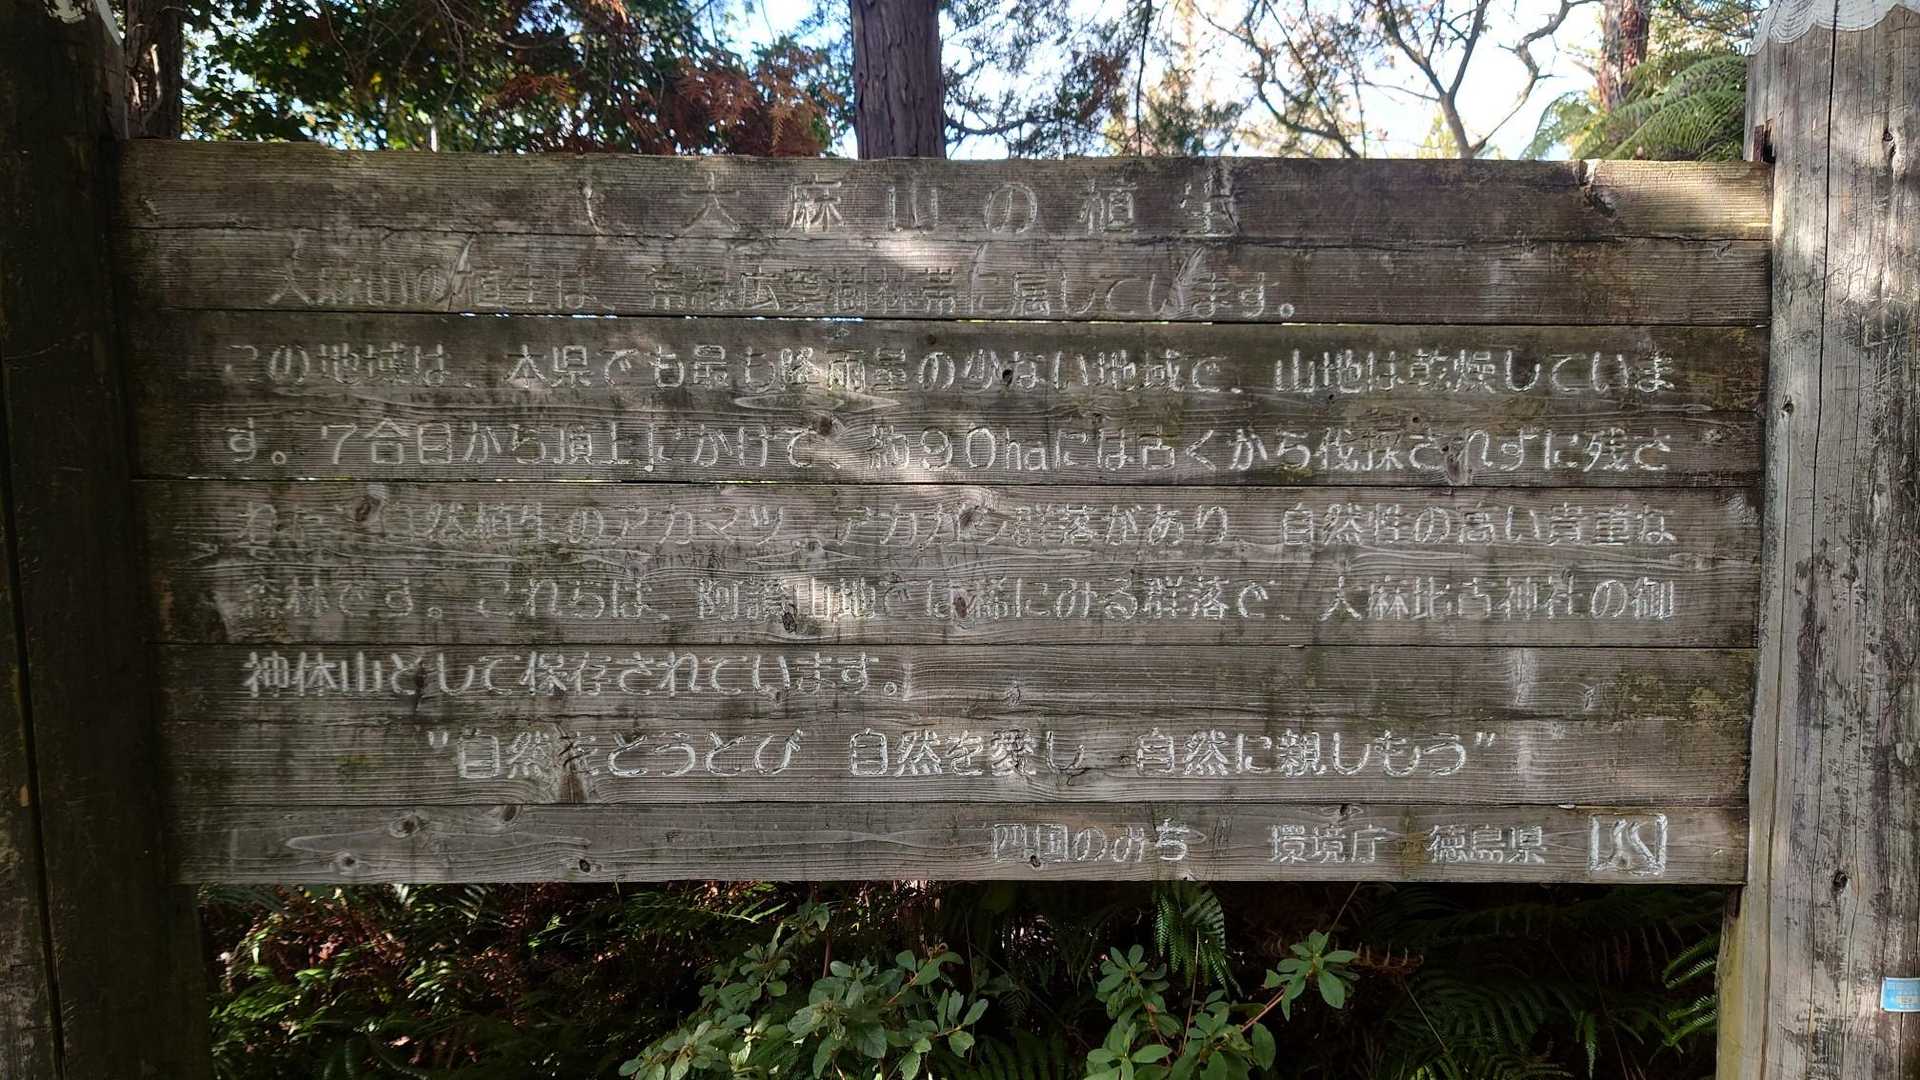 大麻山の植生
大麻山の植生は、常緑広葉樹林帯に属しています。
この地域は、本県でも最も降雨量の少ない地域で、山地は乾燥していま
す。7合目から頂上にかけて、約90haには古くから伐採されずに残さ
れた 自然植生のアカマツ、アカガシ群落があり、自然性の高い貴重な
森林です。これらは、阿讃山地では稀にみる群落で、大麻比古神社の御
神体山として保存されています。
"自然をとうとび 自然を愛し 自然に親しもう"
四国のみち 環境庁 徳島県